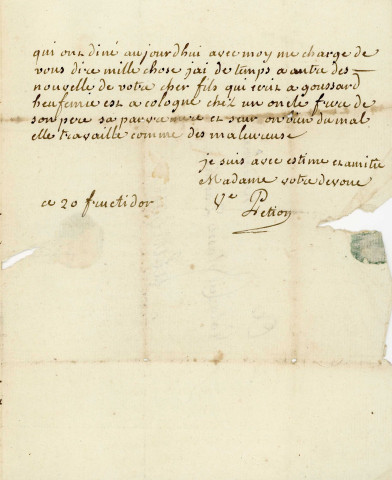 qui ont diné aujourdhui avec moy me charge de
vous dire mille chose jai de temps a autre des
nouvelle de votre cher fils qui ecrit a goussard
henfance est a cologne chez un oncle frere de
son pere sa par et seur on du mal
elle travaille comme des malureuse
je suis avec estime et amitie
Madame votre devoué
ce 20 fructidor Ve Petion